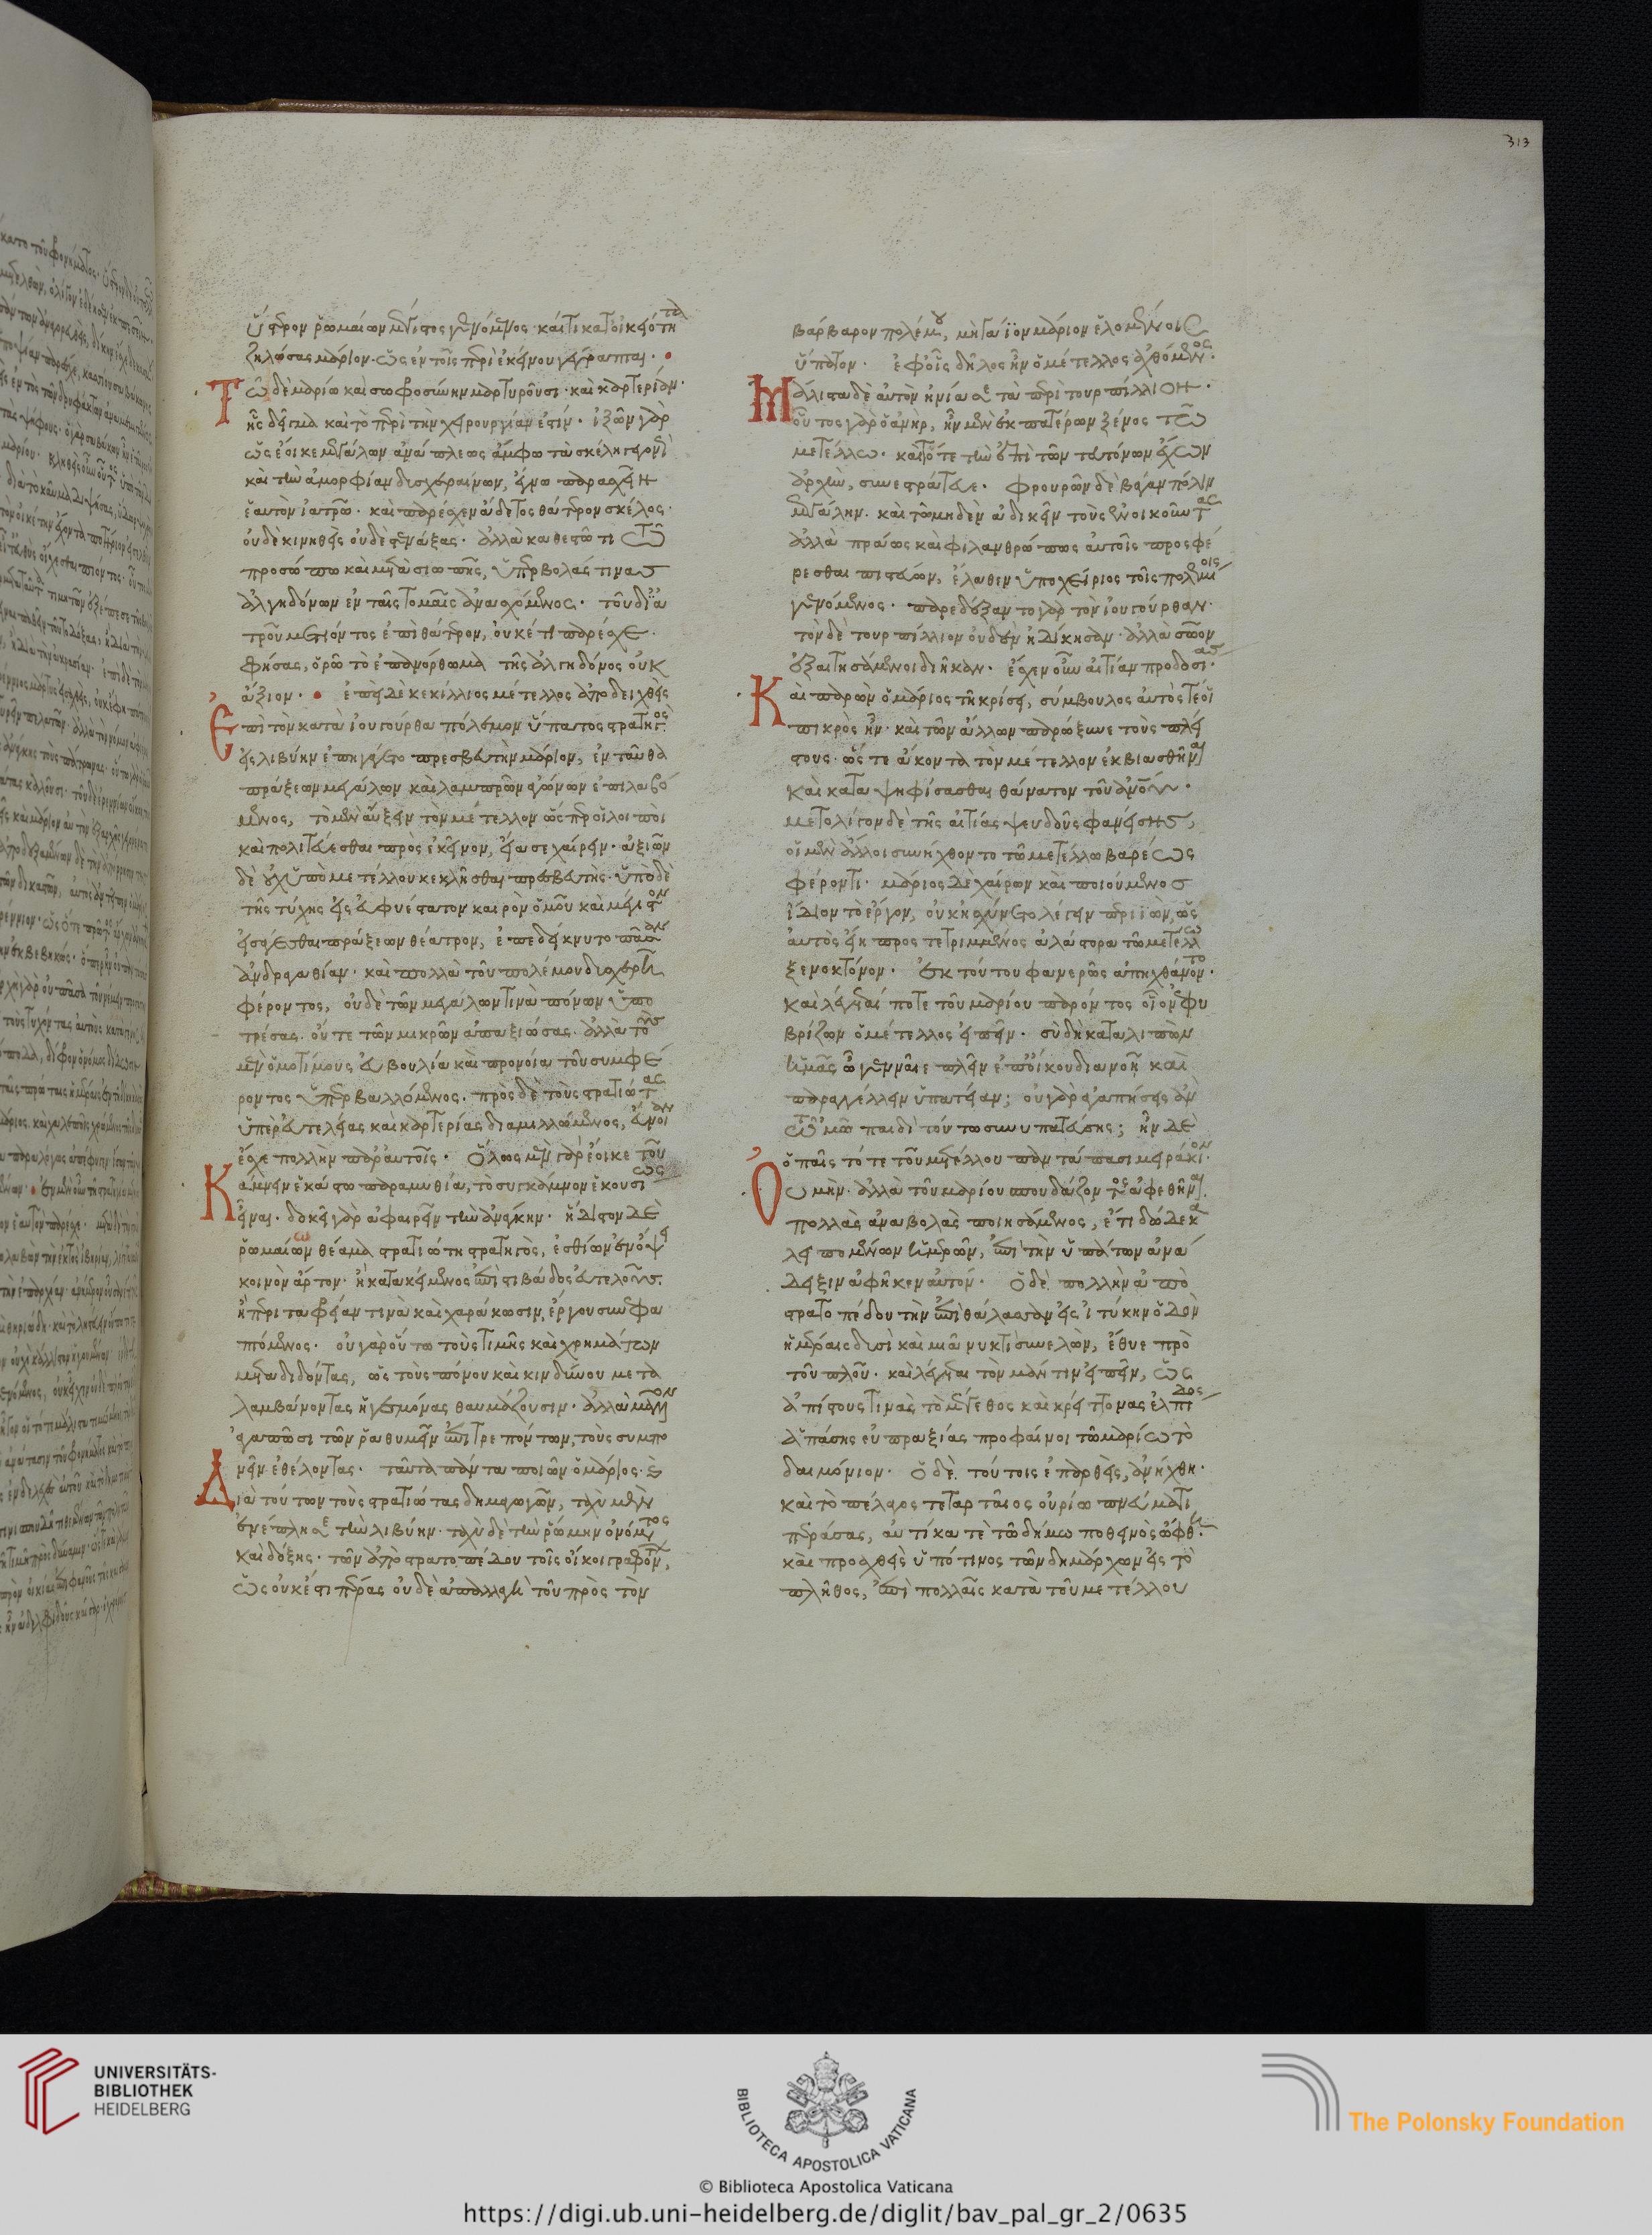 ὕστερον ῥωμαίων μέγιστος γενόμενος· καί τι κατ' οἰκειότητα
ζηλώσας μάριον· ὡς ἐν τοῖς περὶ ἐκείνου γέγραπται.
Τῶ δὲ μαρίω καὶ σωφροσύνην μαρτυροῦσι· καὶ καρτερίαν·
ἧς δεῖγμα καὶ τὸ περὶ τὴν χειρουργίαν ἐστίν. ἰξιῶν γὰρ
ὡς ἔοικε μεγάλων ἀνάπλεως ἄμφω τὰ σκέλη γεγονὼς
καὶ τὴν ἀμορφίαν δυσχεραίνων, ἔγνω παρασχεῖν
ἑαυτὸν ἰατρῶ· καὶ παρέσχεν ἄδετος θάτερον σκέλος·
οὐδὲ κινηθεὶς οὐδὲ στενάξας· ἀλλὰ καθεστῶτι τῶ
προσώπω καὶ μετὰ σιωπῆς, ὑπερβολάς τινας
ἀλγηδόνων ἐν ταῖς τομαῖς ἀνασχόμενος. τοῦ δ' ἰα
τροῦ μετιόντος ἐπὶ θάτερον, οὐκέτι παρέσχε·
φήσας, ὁρῶ τὸ ἐπανόρθωμα τῆς ἀλγηδόνος οὐκ
ἄξιον. ἐπεὶ δὲ κεκίλλιος μέτελλος ἀποδειχθεὶς
Ἐπὶ τὸν κατὰ ἰουγούρθα πόλεμον ὕπατος στρατηγὸς
εἰς λιβύην ἐπηγάγετο πρεσβευτὴν μάριον, ἐνταῦθα
πράξεων μεγάλων καὶ λαμπρῶν ἀγώνων ἐπιλαβό
μενος, τὸ μὲν αὔξειν τὸν μέτελλον ὥσπερ οἱ λοιποὶ
καὶ πολιτεύεσθαι πρὸς ἐκεῖνον, εἴασε χαίρειν· ἀξιῶν
δὲ οὐχ ὑπὸ μετέλλου κεκλῆσθαι πρεσβευτής· ὑπὸ δὲ
τῆς τύχης εἰς εὐφυέστατον καιρὸν ὁμοῦ καὶ μέγιστον
εἰσάγεσθαι πράξεων θέατρον, ἐπεδείκνυτο πᾶσαν
ἀνδραγαθίαν. καὶ πολλὰ τοῦ πολέμου δυσχερῆ
φέροντος, οὐδὲ τῶν μεγάλων τινὰ πόνων ὑπο
τρέσας. οὔτε τῶν μικρῶν ἀπαξιώσας· ἀλλὰ τοὺς
μὲν ὁμοτίμους εὐβουλία καὶ προνοία τοῦ συμφέ
ροντος ὑπερβαλλόμενος. πρὸς δὲ τοὺς στρατιώτας
ὑπὲρ εὐτελείας καὶ καρτερίας διαμιλλώμενος, εὔνοιαν
ἔσχε πολλὴν παρ' αὐτοῖς. Ὅλως μὲν γὰρ ἔοικε τοῦ
Κάμνειν ἑκάστω παραμυθία, τὸ συγκάμνον ἑκουσίως
εἶναι. δοκεῖ γὰρ ἀφαιρεῖν τὴν ἀνάγκην. ἥδιστον δὲ
ῥωμαίων θέαμα στρατιώτη στρατηγὸς, ἐσθίων ἐν ὄψει
κοινὸν ἄρτον· ἢ κατακείμενος ἐπὶ στιβάδος εὐτελοῦς.
ἢ περὶ ταφρείαν τινὰ καὶ χαράκωσιν, ἔργου συνεφα
πτόμενος. οὐ γὰρ οὕτω τοὺς τιμῆς καὶ χρημάτων
μεταδιδόντας, ὡς τοὺς πόνου καὶ κινδύνου μετα
λαμβάνοντας ἡγεμόνας θαυμάζουσιν· ἀλλὰ μᾶλλον
ἀγαπῶσι τῶν ῥαθυμεῖν ἐπιτρεπόντων, τοὺς συμπο
νεῖν ἐθέλοντας. ταῦτα πάντα ποιῶν ὁ μάριος· καὶ
Διὰ τούτων τοὺς στρατιώτας δημαγωγῶν, ταχὺ μὲν
ἐνέπλησε τὴν λιβύην· ταχὺ δὲ τὴν ῥώμην ὀνόματος
καὶ δόξης· τῶν ἀπὸ στρατοπέδου τοῖς οἴκοι γραφόντων,
ὡς οὐκ ἔστι πέρας οὐδὲ ἀπαλλαγὴ τοῦ πρὸς τὸν
313
βάρβαρον πολέμου, μὴ γάϊον μάριον ἑλομένοις
ὕπατον. ἐφ' οἷς δῆλος ἦν ὁ μέτελλος ἀχθόμενος.
Μάλιστα δὲ αὐτὸν ἠνίασε τὰ περὶ τουρπίλλιον.
οὗτος γὰρ ὁ ἀνὴρ, ἦν μὲν ἐκ πατέρων ξένος τῶ
μετέλλω. καὶ τότε τὴν ἐπὶ τῶν τεκτόνων ἔχων
ἀρχὴν, συνεστράτευε. φρουρῶν δὲ βάγαν πόλιν
μεγάλην. καὶ τῶ μηδὲν ἀδικεῖν τοὺς ἐνοικοῦντας
ἀλλὰ πράως καὶ φιλανθρώπως αὐτοῖς προσφέ
ρεσθαι πιστεύων, ἔλαθεν ὑποχείριος τοῖς πολεμίοις
γενόμενος. παρεδέξαντο γὰρ τὸν ἰουγούρθαν·
τὸν δὲ τουρπίλλιον οὐδὲν ἠδίκησαν· ἀλλὰ σῶον
ἐξαιτησάμενοι διῆκαν. ἔσχεν οὖν αἰτίαν προδοσίας.
Καὶ παρὼν ὁ μάριος τῆ κρίσει, σύμβουλος αὐτός τε οἱ
πικρὸς ἦν· καὶ τῶν ἄλλων παρώξυνε τοὺς πλεί
στους· ὥστε ἄκοντα τὸν μέτελλον ἐκβιασθῆναι
καὶ καταψηφίσασθαι θάνατον τοῦ ἀνθρώπου.
μετ' ὀλίγον δὲ τῆς αἰτίας ψευδοῦς φανείσης,
οἱ μὲν ἄλλοι συνήχθοντο τῶ μετέλλω βαρέως
φέροντι. μάριος δὲ χαίρων καὶ ποιούμενος
ἴδιον τὸ ἔργον, οὐκ ἠσχύνετο λέγειν περιϊὼν, ὡς
αὐτὸς εἴη προστετριμμένος ἀλάστορα τῶ μετέλλω
ξενοκτόνον. ἐκ τούτου φανερῶς ἀπηχθάνοντο.
καὶ λέγεταί ποτε τοῦ μαρίου παρόντος οἷον ἐφυ
βρίζων ὁ μέτελλος εἰπεῖν. σὺ δὴ καταλιπὼν
ἡμᾶς ὦ γενναῖε πλεῖν ἐπ' οἴκου διανοῆ καὶ
παραγγέλλειν ὑπατείαν; οὐ γὰρ ἀγαπήσεις ἂν
τῶ 'μῶ παιδὶ τούτω συνυπατεύσης; ἦν δὲ
ὁ παῖς τότε τοῦ μετέλλου παντάπασι μειράκιον.
Οὐ μὴν ἀλλὰ τοῦ μαρίου σπουδάζοντος ἀφεθῆναι.
πολλὰς ἀναβολὰς ποιησάμενος, ἔτι δώδεκα
λειπομένων ἡμερῶν, ἐπὶ τὴν ὑπάτων ἀνά
δειξιν ἀφῆκεν αὐτόν. Ὁ δὲ πολλὴν ἀπὸ
στρατοπέδου τὴν ἐπὶ θάλασσαν εἰς ἰτύκην ὁδὸν
ἡμέραις δυσὶ καὶ μιᾶ νυκτὶ συνελὼν, ἔθυε πρὸ
τοῦ πλοῦ. καὶ λέγεται τὸν μάντιν εἰπεῖν, ὡς
ἀπίστους τινὰς τὸ μέγεθος καὶ κρείττονας ἐλπίδος
ἁπάσης εὐπραξίας προφαίνοι τῶ μαρίω τὸ
δαιμόνιον. ὁ δὲ τούτοις ἐπαρθεὶς, ἀνήχθη.
καὶ τὸ πέλαγος τεταρταῖος οὐρίω πνεύματι
περάσας, αὐτίκα τὲ τῶ δήμω ποθεινὸς ὤφθη.
καὶ προαχθεὶς ὑπό τινος τῶν δημάρχων εἰς τὸ
πλῆθος, ἐπὶ πολλαῖς κατὰ τοῦ μετέλλου
UNIVERSITÄTS-
BIBLIOTHEK
HEIDELBERG
BIBLIOTECA APOSTOLICA VATICANA
The Polonsky Foundation
© Biblioteca Apostolica Vaticana
https://digi.ub.uni-heidelberg.de/diglit/bav_pal_gr_2/0635